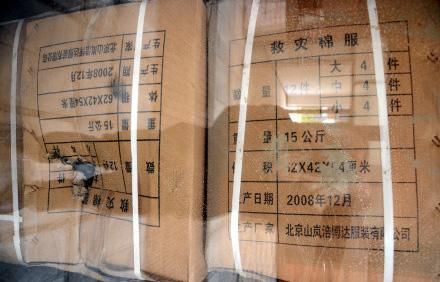 救灾棉
件
数量 12件
重量 15公斤
体积 62X42X54厘米
生产日期 2008年12月
生产厂家 北京山岚浩博达服装有限公司
救灾棉服
数量 12件 大 4 件
中 4 件
小 4 件
重量 15公斤
体积 62X42X54厘米
生产日期 2008年12月
生产厂家 北京山岚浩博达服装有限公司